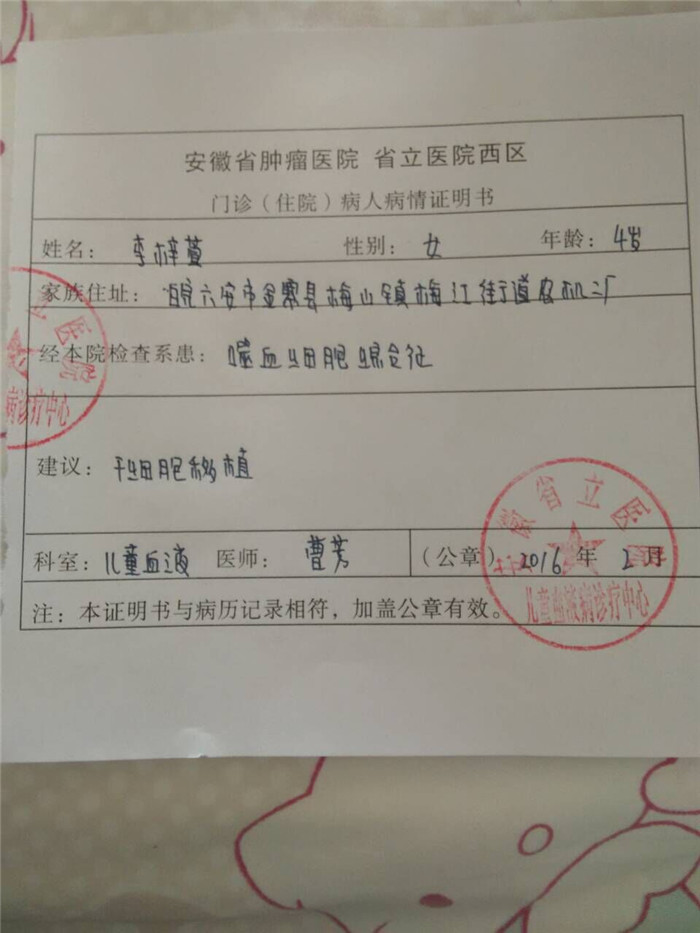 安徽省肿瘤医院 省立医院西区
门诊（住院）病人病情证明书
姓名：李梓萱 性别：女 年龄：4岁
家族住址：皖六安市金寨县梅山镇梅江街道农机二厂
经本院检查系患：噬血细胞综合征
建议：干细胞移植
科室：儿童血液 医师：曹芳 （公章）2016年2月
注：本证明书与病历记录相符，加盖公章有效。
安徽省立医院
儿童血液病诊疗中心
医院
病诊疗中心